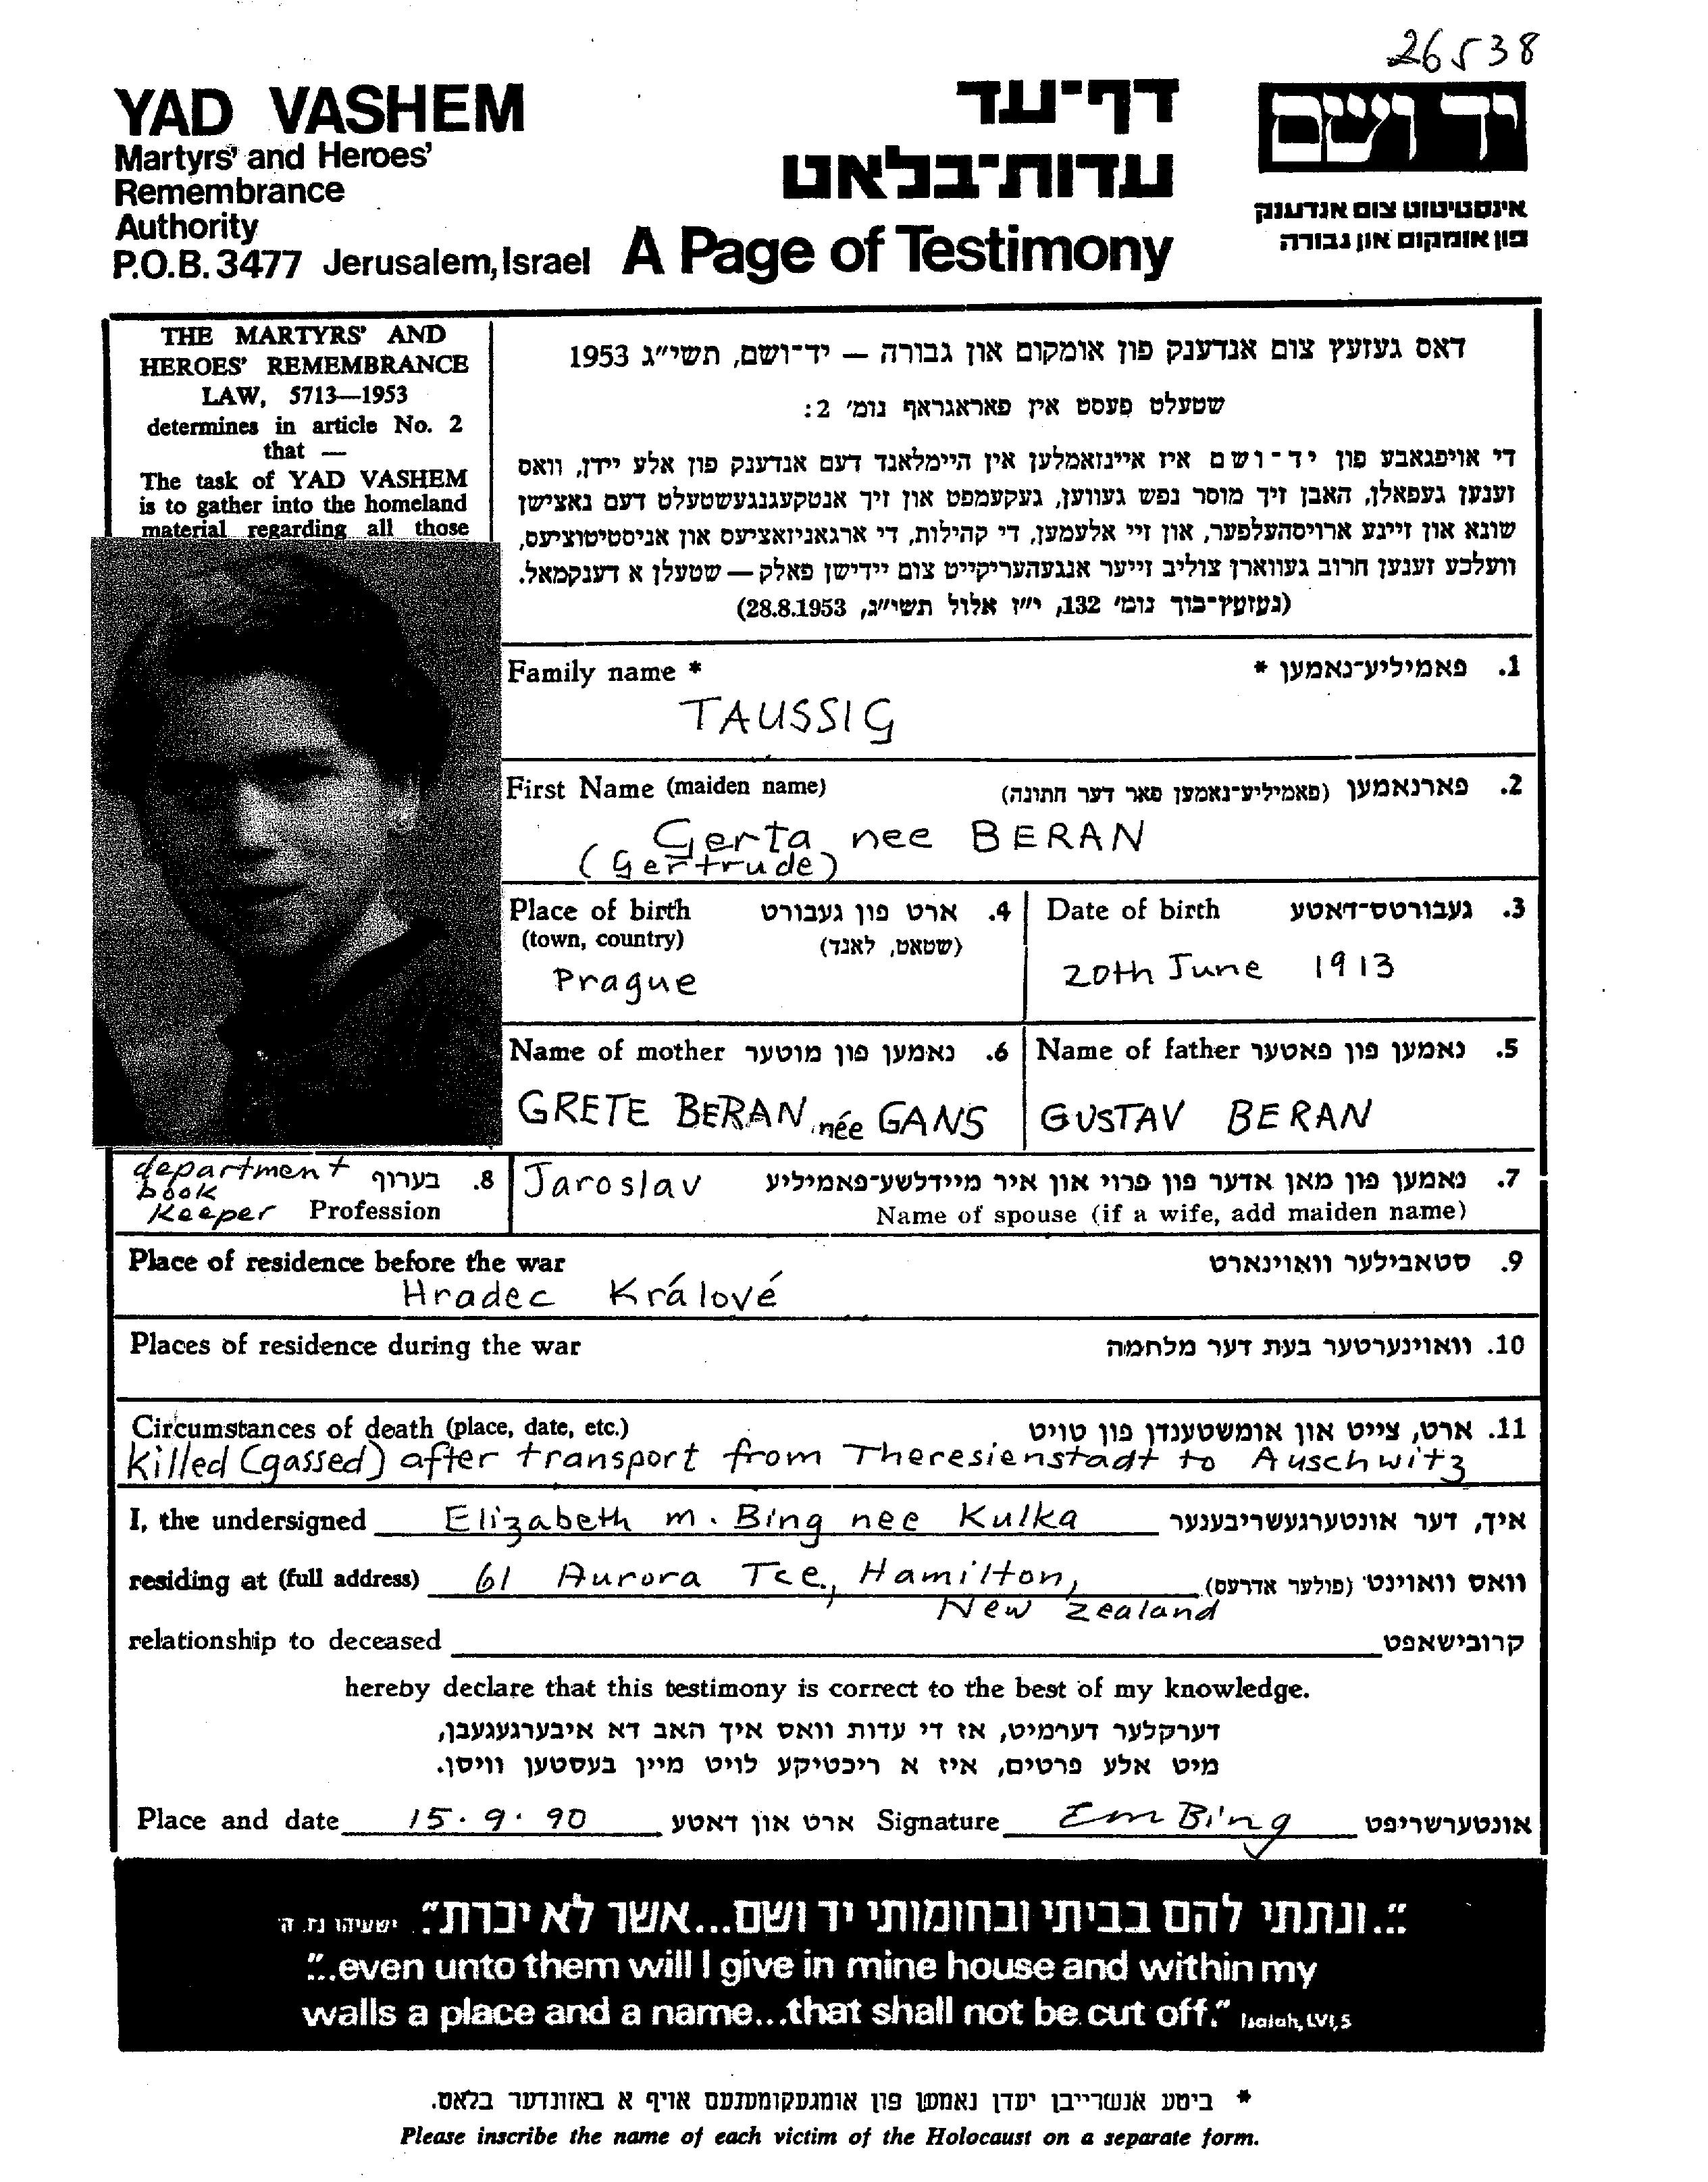 26538
YAD VASHEM
Martyrs' and Heroes'
Remembrance
Authority
P.O.B. 3477 Jerusalem, Israel
דף־עד
עדות־בלאט
A Page of Testimony
יד ושם
אינסטיטוט צום אנדענק
פון אומקום און גבורה
THE MARTYRS' AND
HEROES' REMEMBRANCE
LAW, 5713—1953
determines in article No. 2
that —
The task of YAD VASHEM
is to gather into the homeland
material regarding all those
דאס געזעץ צום אנדענק פון אומקום און גבורה — יד־ושם, תשי״ג 1953
שטעלט פעסט אין פאראגראף נומ׳ 2:
די אויפגאבע פון יד־ושם איז איינזאמלען אין היימלאנד דעם אנדענק פון אלע יידן, וואס
זענען געפאלן, האבן זיך מוסר נפש געווען, געקעמפט און זיך אנטקעגנגעשטעלט דעם נאצישן
שונא און זיינע ארויסהעלפער, און זיי אלעמען, די קהילות, די ארגאניזאציעס און אניסטיטוציעס,
וועלכע זענען חרוב געווארן צוליב זייער אנגעהעריקייט צום יידישן פאלק — שטעלן א דענקמאל.
(געזעץ־בוך נומ׳ 132, י״ז אלול תשי״ג, 28.8.1953)
Family name * פאמיליע־נאמען * .1
TAUSSIG
First Name (maiden name) פארנאמען (פאמיליע־נאמען פאר דער חתונה) .2
Gerta nee BERAN
(Gertrude)
Place of birth ארט פון געבורט .4
(town, country) (שטאט, לאנד)
Prague
Date of birth געבורטס־דאטע .3
20th June 1913
Name of mother נאמען פון מוטער .6
GRETE BERAN née GANS
Name of father נאמען פון פאטער .5
GUSTAV BERAN
department
book
keeper
בערוף .8
Profession
Jaroslav נאמען פון מאן אדער פון פרוי און איר מיידלשע־פאמיליע .7
Name of spouse (if a wife, add maiden name)
Place of residence before the war סטאבילער וואוינארט .9
Hradec Králové
Places of residence during the war וואוינערטער בעת דער מלחמה .10
Circumstances of death (place, date, etc.) ארט, צייט און אומשטענדן פון טויט .11
killed (gassed) after transport from Theresienstadt to Auschwitz
I, the undersigned Elizabeth M. Bing nee Kulka איך, דער אונטערגעשריבענער
residing at (full address) 61 Aurora Tce., Hamilton, וואס וואוינט (פולער אדרעס)
New Zealand
relationship to deceased קרובישאפט
hereby declare that this testimony is correct to the best of my knowledge.
דערקלער דערמיט, אז די עדות וואס איך האב דא איבערגעגעבן,
מיט אלע פרטים, איז א ריכטיקע לויט מיין בעסטען וויסן.
Place and date 15.9.90 ארט און דאטע Signature EM Bing אונטערשריפט
״...ונתתי להם בביתי ובחומותי יד ושם...אשר לא יכרת״. ישעיהו נו, ה׳
"...even unto them will I give in mine house and within my
walls a place and a name...that shall not be cut off." Isaiah, LVI, 5
* ביטע אנשרייבן יעדן נאמען פון אומגעקומענעם אויף א באזונדער בלאט.
Please inscribe the name of each victim of the Holocaust on a separate form.